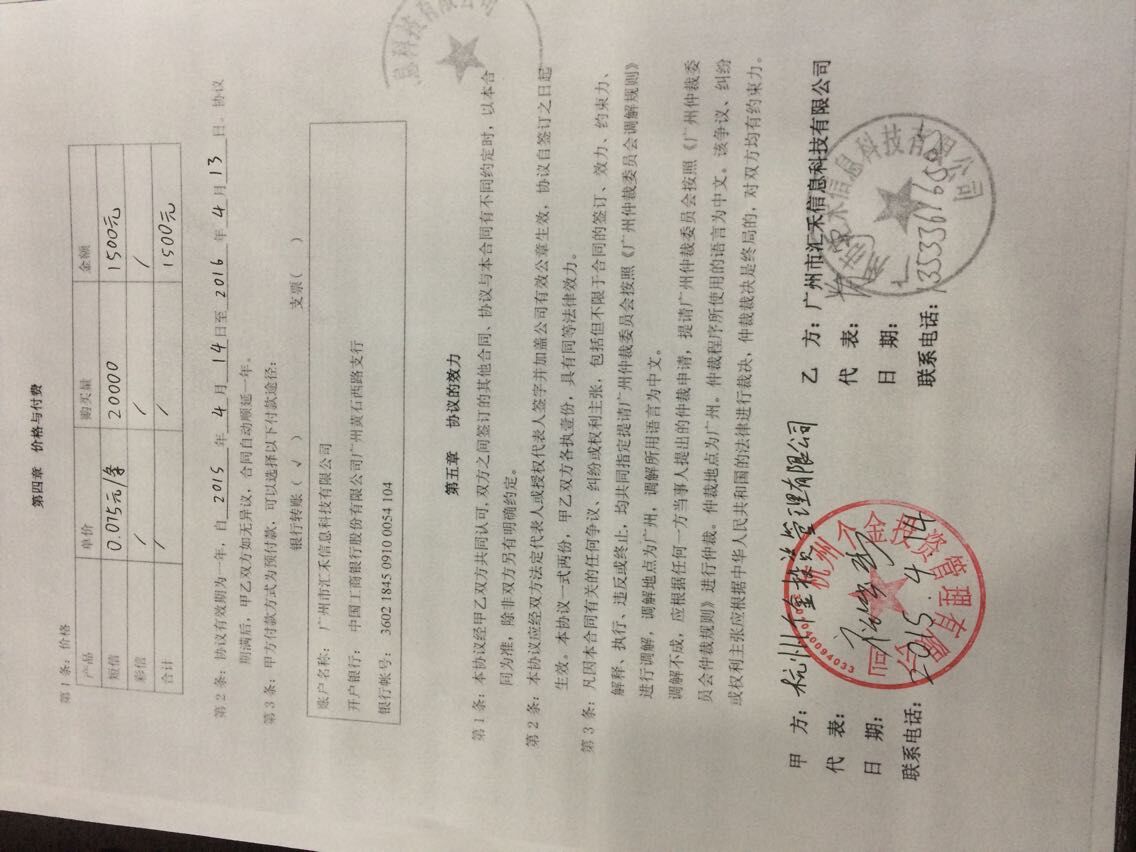 第四章 价格与付费
第 1 条：价格
产品 单价 购买量 金额
短信 0.075元/条 20000 1500元
彩信 / / /
合计 / / 1500元
第 2 条：协议有效期为一年，自 2015 年 4 月 14 日至 2016 年 4 月 13 日。协议
期满后，甲乙双方如无异议，合同自动顺延一年。
第 3 条：甲方付款方式为预付款，可以选择以下付款途径：
银行转账（ √ ） 支票（ ）
账户名称： 广州市汇禾信息科技有限公司
开户银行： 中国工商银行股份有限公司广州黄石西路支行
银行帐号： 3602 1845 0910 0054 104
第五章 协议的效力
第 1 条：本协议经甲乙双方共同认可，双方之间签订的其他合同、协议与本合同有不同约定时，以本合
同为准，除非双方另有明确约定。
第 2 条：本协议应经双方法定代表人或授权代表人签字并加盖公司有效公章生效，协议自签订之日起
生效。本协议一式两份，甲乙双方各执壹份，具有同等法律效力。
第 3 条：凡因本合同有关的任何争议、纠纷或权利主张，包括但不限于合同的签订、效力、约束力、
解释、执行、违反或终止，均共同指定提请广州仲裁委员会按照《广州仲裁委员会调解规则》
进行调解，调解地点为广州，调解所用语言为中文。
调解不成，应根据任何一方当事人提出的仲裁申请，提请广州仲裁委员会按照《广州仲裁委
员会仲裁规则》进行仲裁。仲裁地点为广州。仲裁程序所使用的语言为中文。该争议、纠纷
或权利主张应根据中华人民共和国的法律进行裁决，仲裁裁决是终局的，对双方均有约束力。
甲 方：杭州介金投资管理有限公司
代 表：
日 期：
联系电话：2015.4.14
杭州介金投资管理有限公司
乙 方：广州市汇禾信息科技有限公司
代 表：
日 期：
联系电话：
禾信息科技有限公司
息科技有限公司